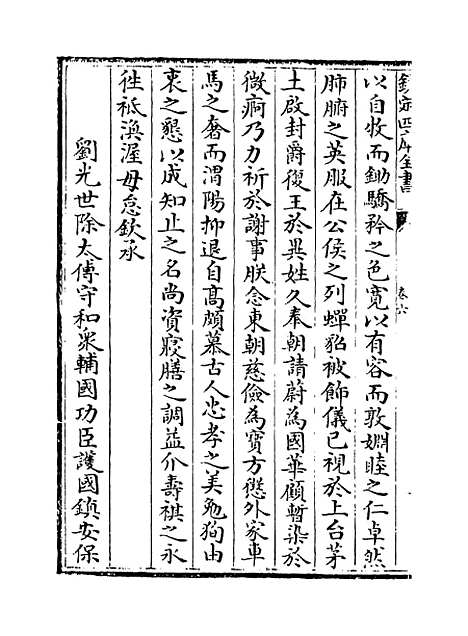 欽定四庫全書
卷六
以自收而鋤驕矜之色寛以有容而敦婣睦之仁卓然
肺腑之英服在公侯之列蟬貂被飾儀已視於上台茅
土啟封爵復王於異姓久奉朝請蔚為國華顧暫染於
微痾乃力祈於謝事朕念東朝慈儉為寳方懲外家車
馬之奢而渭陽抑退自髙頗慕古人忠孝之美勉狥由
衷之懇以成知止之名尚資寢膳之調益介壽祺之永
徃祗渙渥毋怠欽承
劉光世除太傅守和衆輔國功臣護國鎮安保